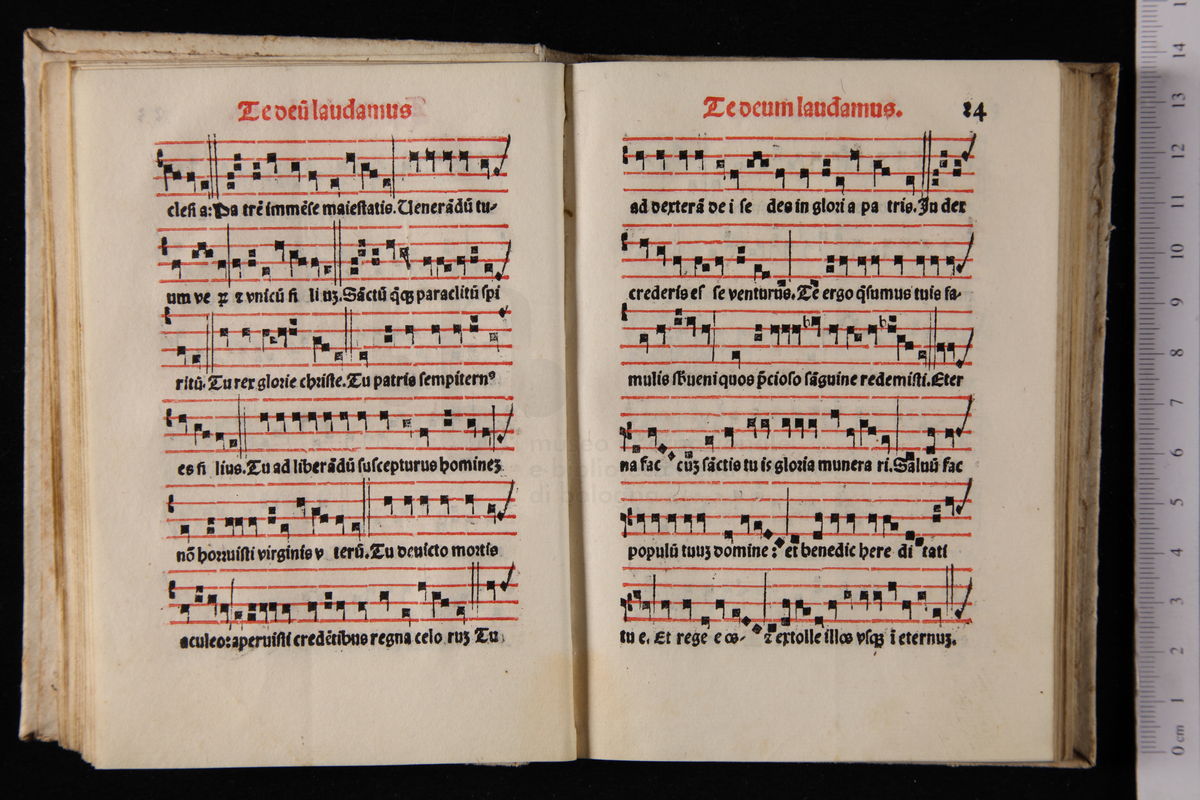 Te deū laudamus
clesi a: Pa trē immēse maiestatis. Uenerādū tu-
um ve ꝝ ⁊ vnicū fi li uꝫ. Sāctū q̄qꝫ paraclitū spi
ritū. Tu rex glorie christe. Tu patris sempitern⁹
es fi lius. Tu ad liberādū suscepturus homineꝫ
nō horruisti virginis v terū. Tu deuicto mortis
aculeo: aperuisti credētibus regna celo ruꝫ Tu
Te deum laudamus.
84
ad dexterā de i se des in glori a pa tris. Iu dex
crederis es se venturus. Te ergo q̄sumus tuis fa-
mulis sb̄ueni quos p̄cioso sāguine redemisti. Eter
na fac cuꝫ sāctis tu is gloria munera ri. Saluū fac
populū tuuꝫ domine: et benedic here di tati
tu e. Et rege e os- ⁊ extolle illos vsqꝫ ī eternuꝫ.
museo
e biblio
di bologna
0 cm 1 2 3 4 5 6 7 8 9 10 11 12 13 14